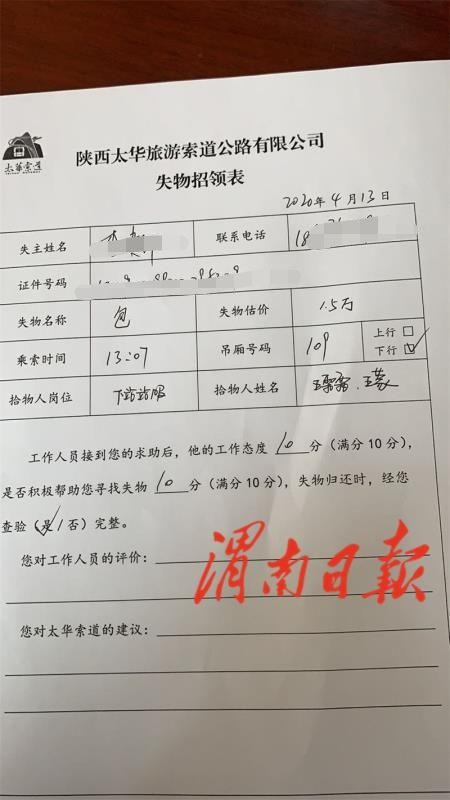 太华索道
陕西太华旅游索道公路有限公司
失物招领表
2020年4月13日
失主姓名 联系电话 18
证件号码
失物名称 包 失物估价 1.5万
乘索时间 13:07 吊厢号码 109 上行□
下行☑
拾物人岗位 下站站服 拾物人姓名
工作人员接到您的求助后，他的工作态度 10 分（满分10分），
是否积极帮助您寻找失物 10 分（满分10分），失物归还时，经您
查验（是/否）完整。
您对工作人员的评价：
渭南日报
您对太华索道的建议：